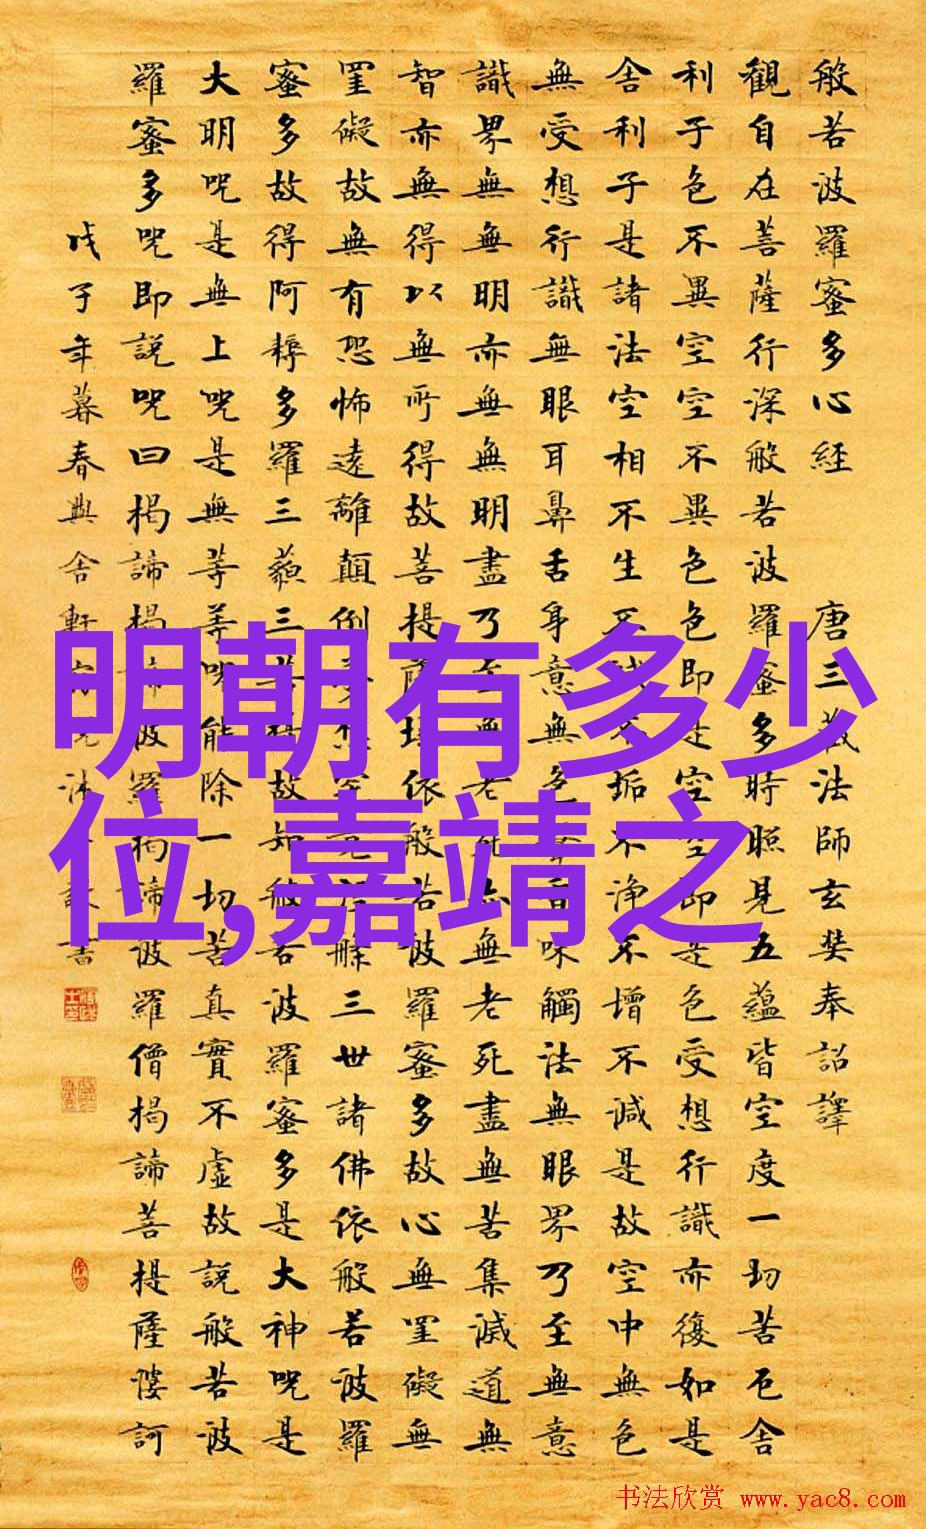 般若波羅蜜多心經 唐三藏法師玄奘奉詔譯
觀自在菩薩行深般若波羅蜜多時照見五蘊皆空度一切苦厄舍
利子色不異空空不異色色即是空空即是色受想行識亦復如是
舍利子是諸法空相不生不滅不垢不淨不增不減是故空中無色
無受想行識無眼耳鼻舌身意無色聲香味觸法無眼界乃至無意
識界無無明亦無無明盡乃至無老死亦無老死盡無苦集滅道無
智亦無得以無所得故菩提薩埵依般若波羅蜜多故心無罣礙無
罣礙故無有恐怖遠離顛倒夢想究竟涅槃三世諸佛依般若波羅
蜜多故得阿耨多羅三藐三菩提故知般若波羅蜜多是大神咒是
大明咒是無上咒是無等等咒能除一切苦真實不虛故說般若波
羅蜜多咒即說咒曰揭諦揭諦波羅揭諦波羅僧揭諦菩提薩婆訶
戊子年暮春興舍軒書
明朝有多少
位,嘉靖之
书法欣赏 www.yac8.com